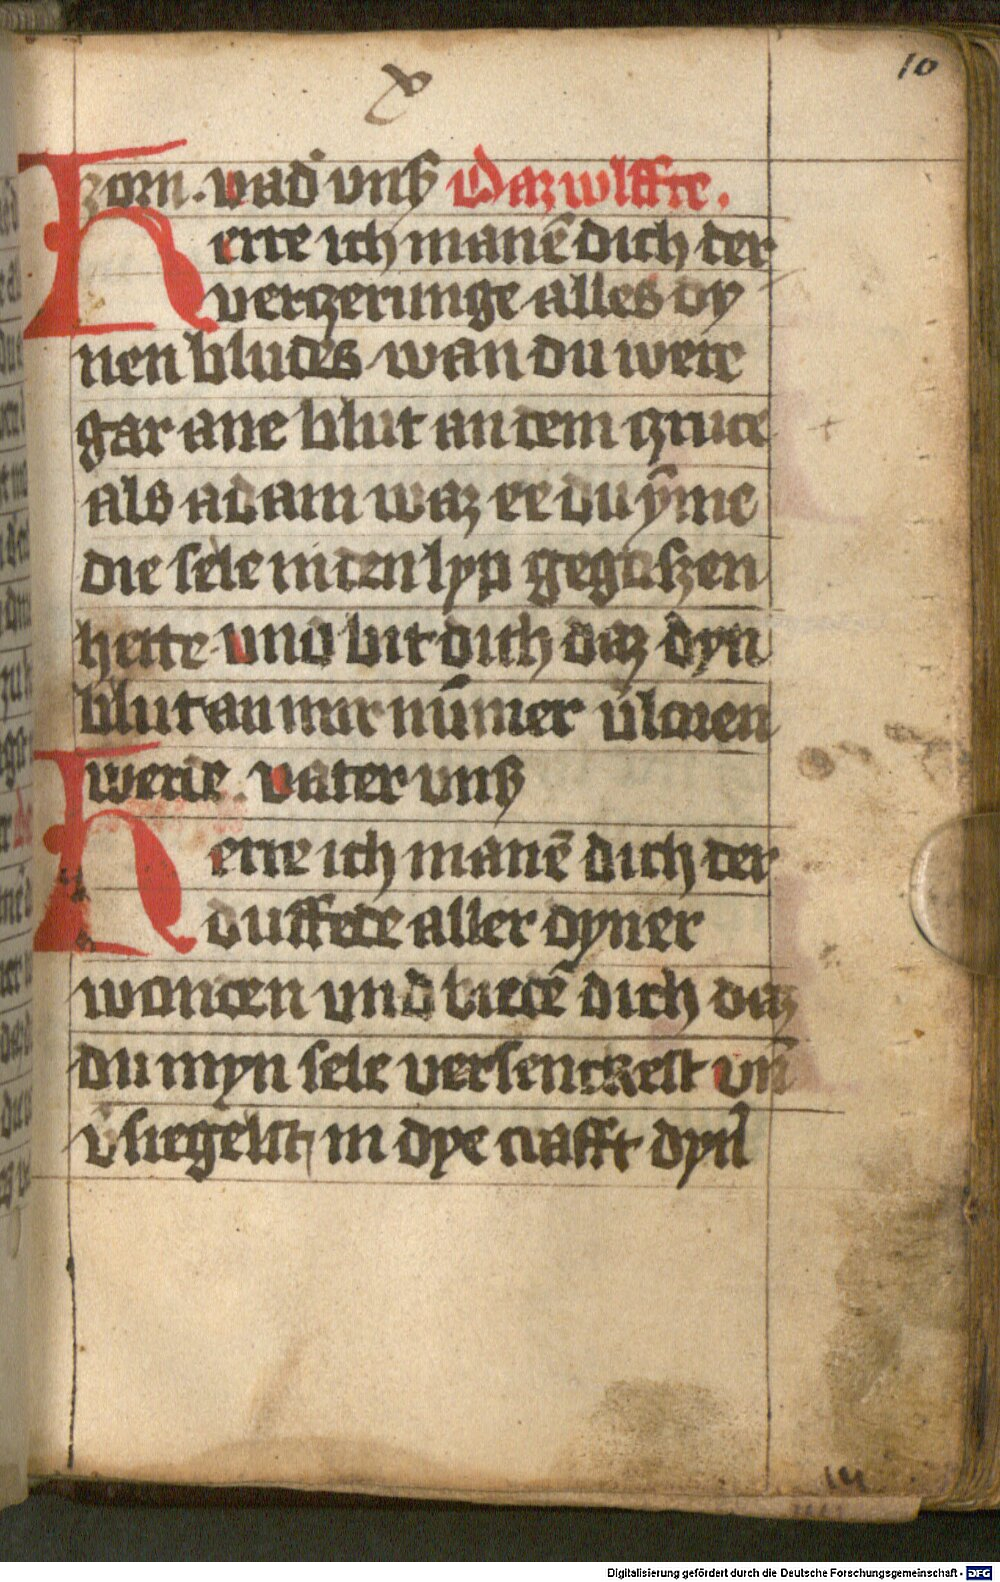 x
10
zorn. vad' vnß Daz xwlffte.
Herre ich manē dich der
verczerunge alles dy
nen bludes wan du were
gar ane blut an dem cruce
als adam waz ee du ẏme
die sele in den lyp gegoszen
hette. vnd bit dich daz dyn
blut an mir nūmer v̄loren
werde. vater vnß
Herre ich manē dich der
duffede aller dyner
wonden vnd biede dich daz
du myn sele versenckest vn̄
v̄siegelst in dye crafft dyn̄
Digitalisierung gefördert durch die Deutsche Forschungsgemeinschaft - DFG